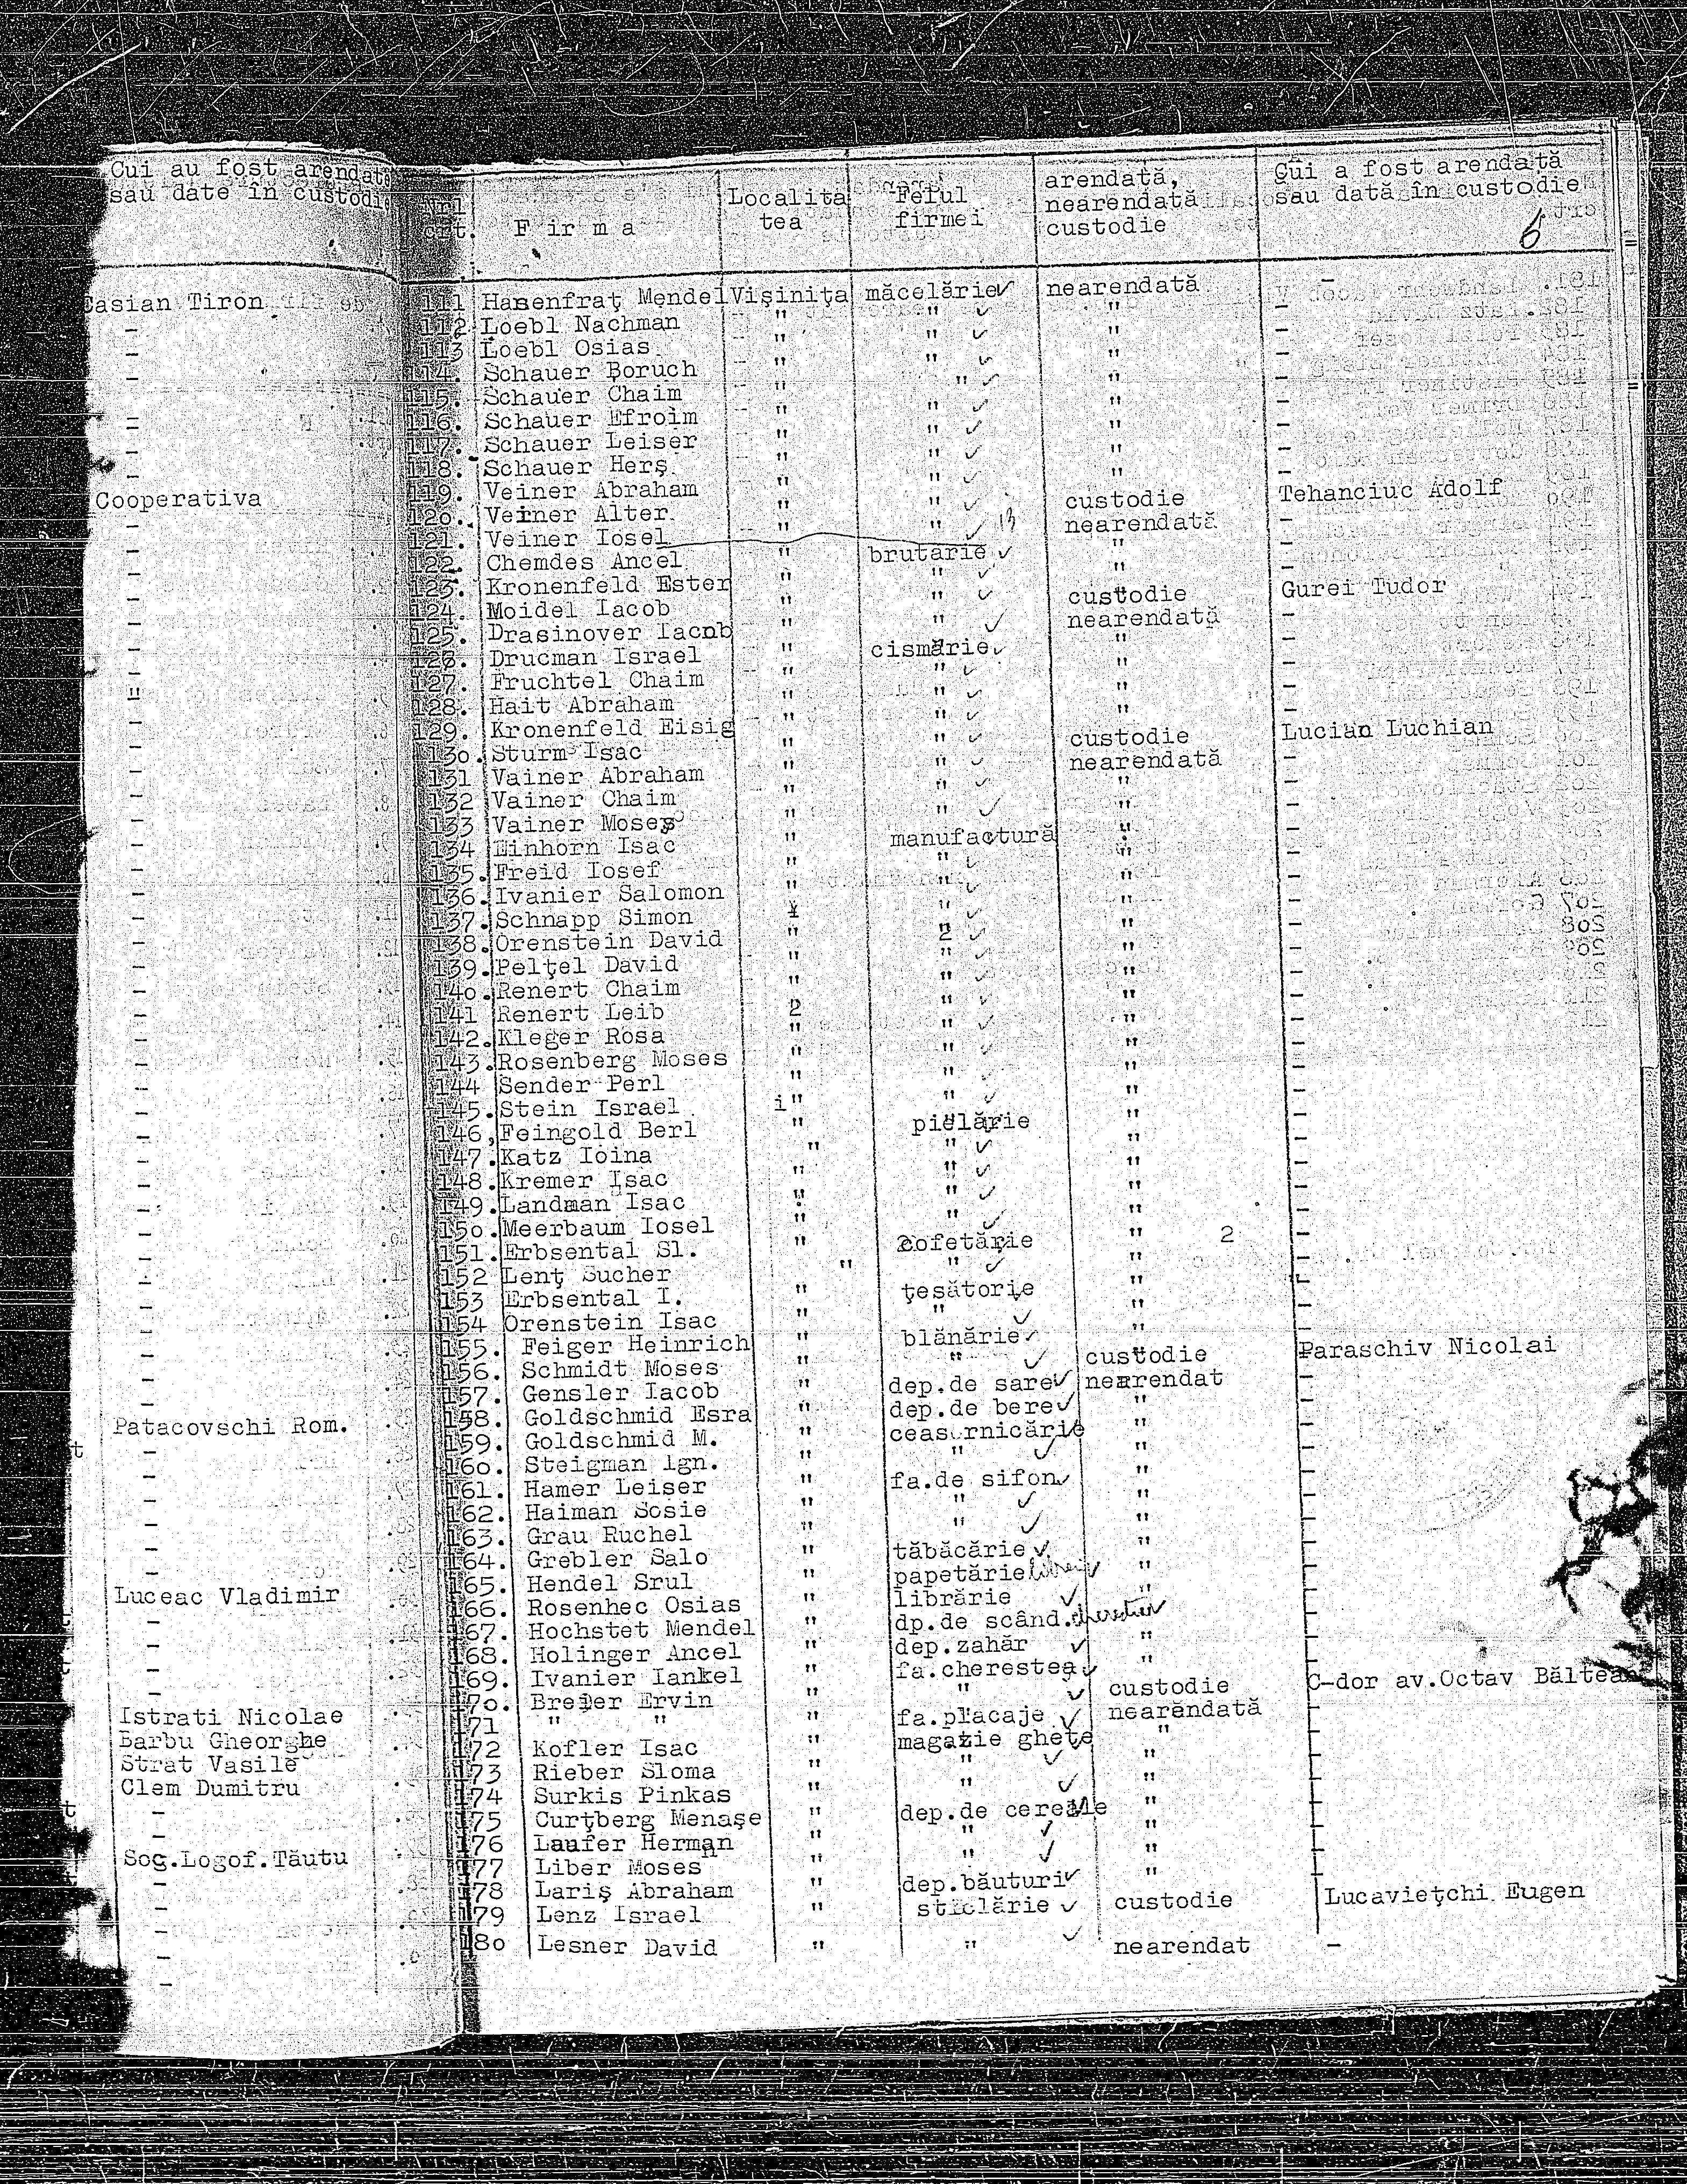 Cui au fost arendate
sau date în custodie
Casian Tiron
-
-
-
-
-
-
Cooperativa
-
-
-
-
-
-
"
-
-
-
-
Patacovschi Rom.
-
-
-
-
-
Luceac Vladimir
-
-
-
-
Istrati Nicolae
Barbu Gheorghe
Strat Vasile
Clem Dumitru
-
-
Soc.Logof.Tăutu
-
-
-
-
Nrl crt. F ir m a Localita tea Felul firmei arendată, nearendată custodie Cui a fost arendată sau dată în custodie
6
111 Hasenfraţ Mendel Vişiniţa măcelărie nearendată -
112 Loebl Nachman " " " -
113 Loebl Osias " " " -
114. Schauer Boruch " " " -
115. Schauer Chaim " " " -
116. Schauer Efroim " " " -
117. Schauer Leiser " " " -
118. Schauer Herş " " " -
119. Veiner Abraham " " custodie Tehanciuc Adolf
120. Veiner Alter " " nearendată -
121. Veiner Iosel " " " -
122. Chemdes Ancel " brutărie " -
123. Kronenfeld Ester " " custodie Gurei Tudor
124. Moidel Iacob " " nearendată -
125. Drasinover Iacob " " " -
126. Drucman Israel " cismărie " -
127. Fruchtel Chaim " " " -
128. Hait Abraham " " " -
129. Kronenfeld Eisig " " custodie Lucian Luchian
130. Sturm Isac " " nearendată -
131 Vainer Abraham " " " -
132 Vainer Chaim " " " -
133 Vainer Moses " " " -
134 Einhorn Isac " manufactură " -
135. Freid Iosef " " " -
136. Ivanier Salomon " " " -
137. Schnapp Simon " " " -
138. Orenstein David " 2 " -
139. Pelţel David " " " -
140. Renert Chaim " " " -
141 Renert Leib 2 " " -
142. Kleger Rosa " " " -
143. Rosenberg Moses " " " -
144 Sender Perl " " " -
145. Stein Israel i" " " -
146, Feingold Berl " pielărie " -
147. Katz Ioina " " " -
148. Kremer Isac " " " -
149. Landman Isac " " " -
150. Meerbaum Iosel " " " -
151. Erbsental Sl. " cofetărie " 2 -
152 Lenţ Sucher " " " -
153 Erbsental I. " ţesătorie " -
154 Orenstein Isac " " " -
155. Feiger Heinrich " blănărie " -
156. Schmidt Moses " " custodie Paraschiv Nicolai
157. Gensler Iacob " dep.de sare nearendat -
158. Goldschmid Esra " dep.de bere " -
159. Goldschmid M. " ceasornicărie " -
160. Steigman Ign. " " " -
161. Hamer Leiser " fa.de sifon " -
162. Haiman Sosie " " " -
163. Grau Ruchel " " " -
164. Grebler Salo " tăbăcărie " -
165. Hendel Srul " papetărie " -
166. Rosenhec Osias " librărie " -
167. Hochstet Mendel " dp.de scând. cherestea -
168. Holinger Ancel " dep.zahăr " -
169. Ivanier Iankel " fa.cherestea " -
170. Breier Ervin " " custodie C-dor av.Octav Băltean
171 " " " fa.placaje nearendată -
172 Kofler Isac " magazie ghete " -
173 Rieber Sloma " " " -
174 Surkis Pinkas " " " -
175 Curţberg Menaşe " dep.de cereale " -
176 Laufer Herman " " " -
177 Liber Moses " " " -
178 Lariş Abraham " dep.băuturi " -
179 Lenz Israel " sticlărie custodie Lucavieţchi Eugen
180 Lesner David " " nearendat -